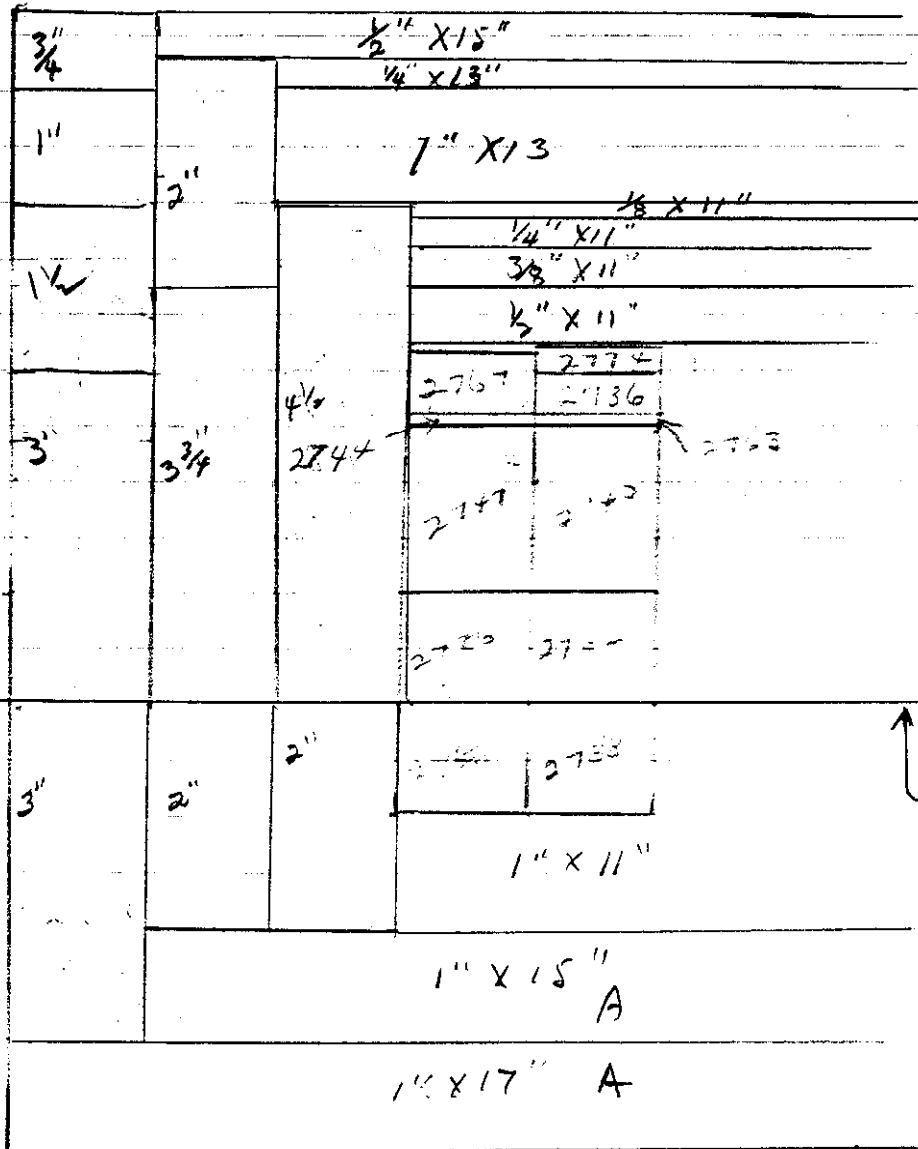 3/4"
1/2" X 15"
1/4" X 13"
1"
1" X 13
2"
1/8 X 11"
1/4" X 11"
3/8" X 11"
1 1/2
1/2" X 11"
2767
2774
2736
4 1/2
2744
2763
3"
3 3/4"
2747
2"
3"
2"
2738
1" X 11"
1" X 15"
A
1" X 17" A